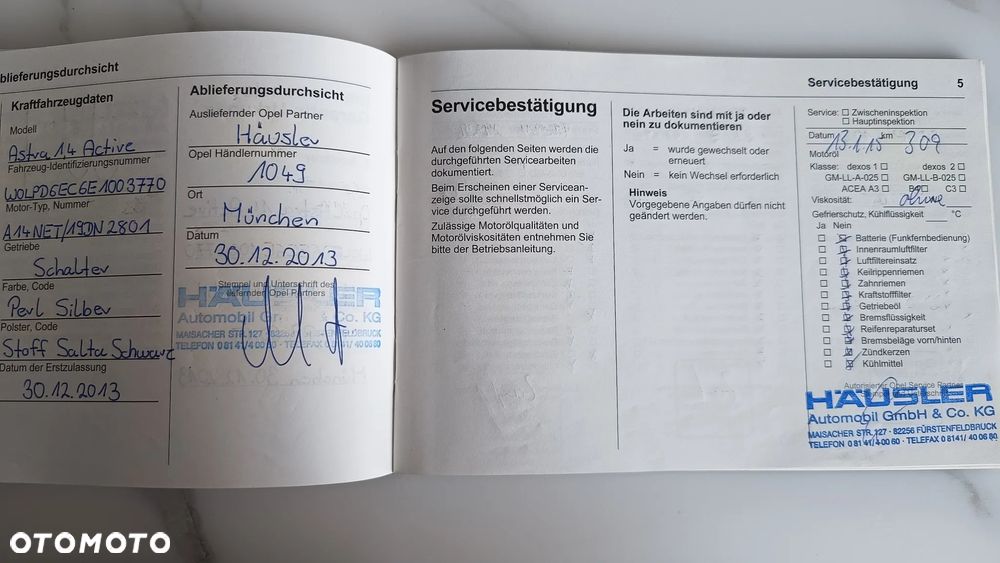 blieferungsdurchsicht
Kraftfahrzeugdaten
Modell
Astra 1,4 Active
Fahrzeug-Identifizierungsnummer
W0LPD6EC6E1003770
Motor-Typ, Nummer
A14NET/19DN2801
Getriebe
Schalter
Farbe, Code
Perl Silber
Polster, Code
Stoff Salta Schwarz
Datum der Erstzulassung
30.12.2013
Ablieferungsdurchsicht
Ausliefernder Opel Partner
Häusler
Opel Händlernummer
1049
Ort
München
Datum
30.12.2013
Stempel und Unterschrift des
liefernden Opel Partners
HÄUSLER
Automobil GmbH & Co. KG
MAISACHER STR. 127 · 82256 FÜRSTENFELDBRUCK
TELEFON 0 81 41/4 00 60 · TELEFAX 0 81 41/ 40 06 80
Servicebestätigung
Auf den folgenden Seiten werden die
durchgeführten Servicearbeiten
dokumentiert.
Beim Erscheinen einer Servicean-
zeige sollte schnellstmöglich ein Ser-
vice durchgeführt werden.
Zulässige Motorölqualitäten und
Motorölviskositäten entnehmen Sie
bitte der Betriebsanleitung.
Die Arbeiten sind mit ja oder
nein zu dokumentieren
Ja = wurde gewechselt oder
erneuert
Nein = kein Wechsel erforderlich
Hinweis
Vorgegebene Angaben dürfen nicht
geändert werden.
Servicebestätigung 5
Service: Zwischeninspektion
Hauptinspektion
Datum 13.1.15 km 309
Motoröl
Klasse: dexos 1 dexos 2
GM-LL-A-025 GM-LL-B-025
ACEA A3 C3
Viskosität:
Gefrierschutz, Kühlflüssigkeit °C
Ja Nein
Batterie (Funkfernbedienung)
Innenraumluftfilter
Luftfiltereinsatz
Keilrippenriemen
Zahnriemen
Kraftstofffilter
Getriebeöl
Bremsflüssigkeit
Reifenreparaturset
Bremsbeläge vorn/hinten
Zündkerzen
Kühlmittel
Autorisierter Opel Service Partner
HÄUSLER
Automobil GmbH & Co. KG
MAISACHER STR. 127 · 82256 FÜRSTENFELDBRUCK
TELEFON 0 81 41/4 00 60 · TELEFAX 0 81 41/ 40 06 80
OTOMOTO